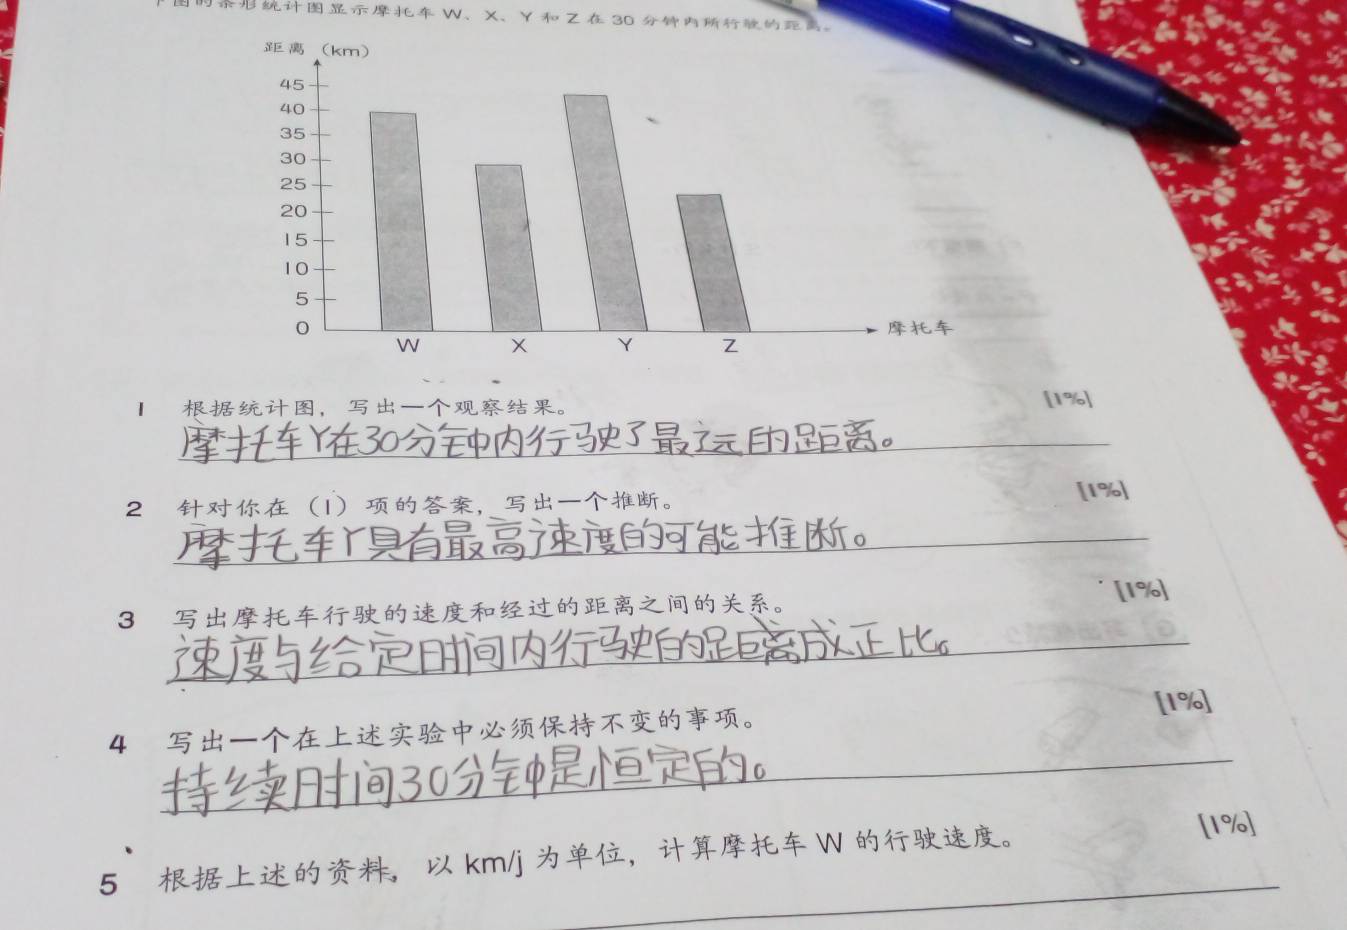 下图的条形统计图显示摩托车 W、X、Y 和 Z 在 30 分钟内所行驶的距离。
距离 (km)
45
40
35
30
25
20
15
10
5
0
W X Y Z
摩托车
1 根据统计图，写出一个观察结果。 [1%]
摩托车Y在30分钟内行驶了最远的距离。
2 针对你在（1）项的答案，写出一个推断。 [1%]
摩托车Y具有最高速度的可能推断。
3 写出摩托车行驶的速度和经过的距离之间的关系。 [1%]
速度与给定时间内行驶的距离成正比。
4 写出一个在上述实验中必须保持不变的事项。 [1%]
持续时间30分钟是恒定的。
5 根据上述的资料，以 km/j 为单位，计算摩托车 W 的行驶速度。 [1%]